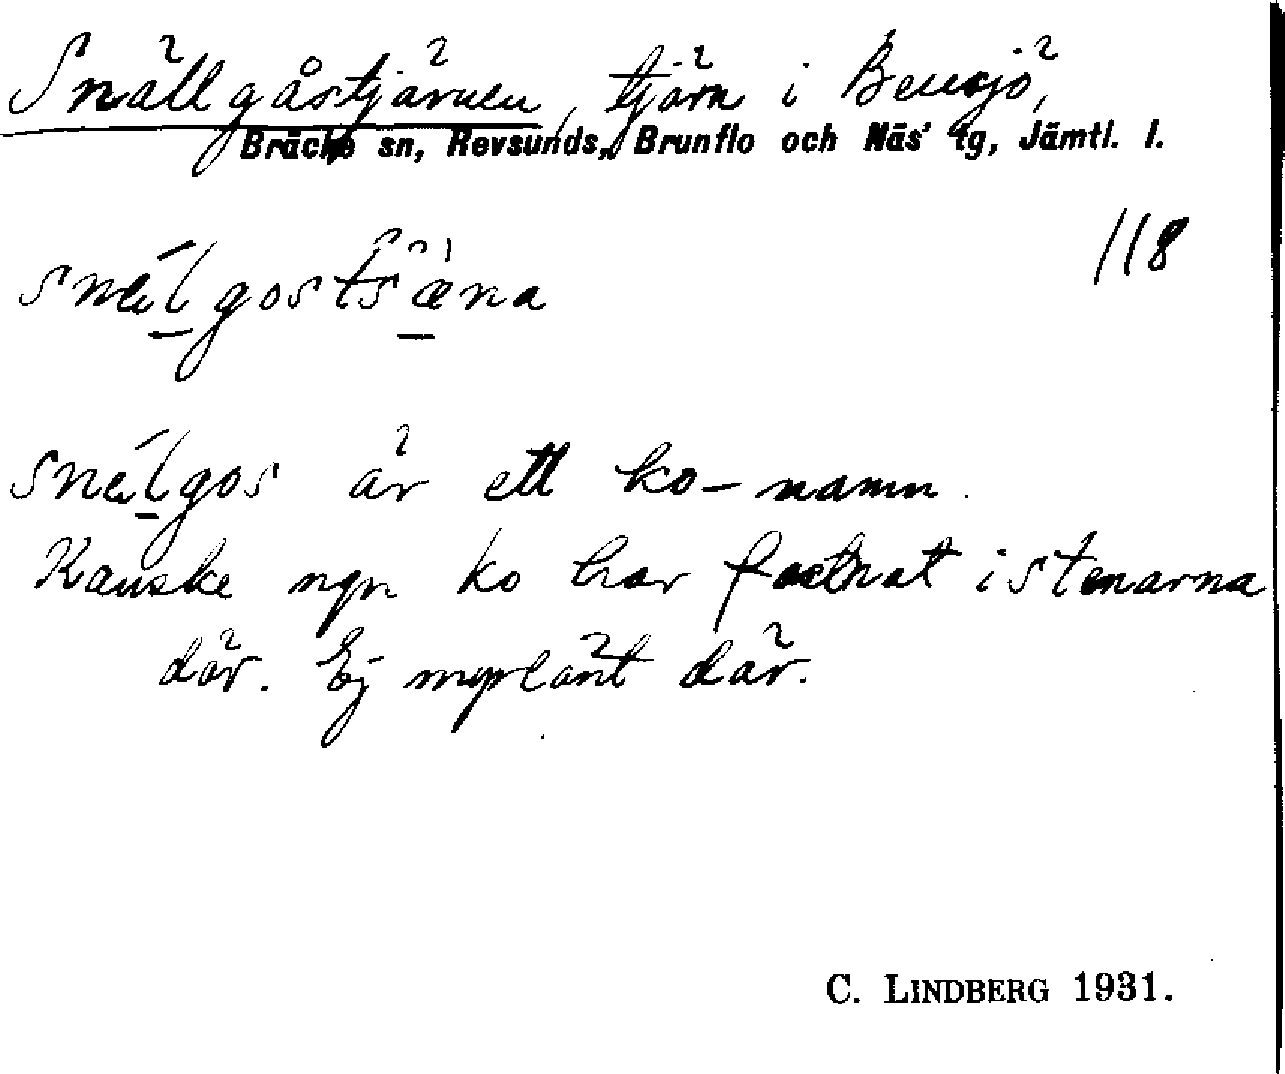 Snällgåstjärnen, tjärn i Bensjö,
Bräcke sn, Revsunds, Brunflo och Näs' tg, Jämtl. l.
118
snálgostšæ̀na
snálgos är ett ko-namn.
Kanske ngn ko har fastnat i stenarna
där. Ej myrlänt där.
C. LINDBERG 1931.